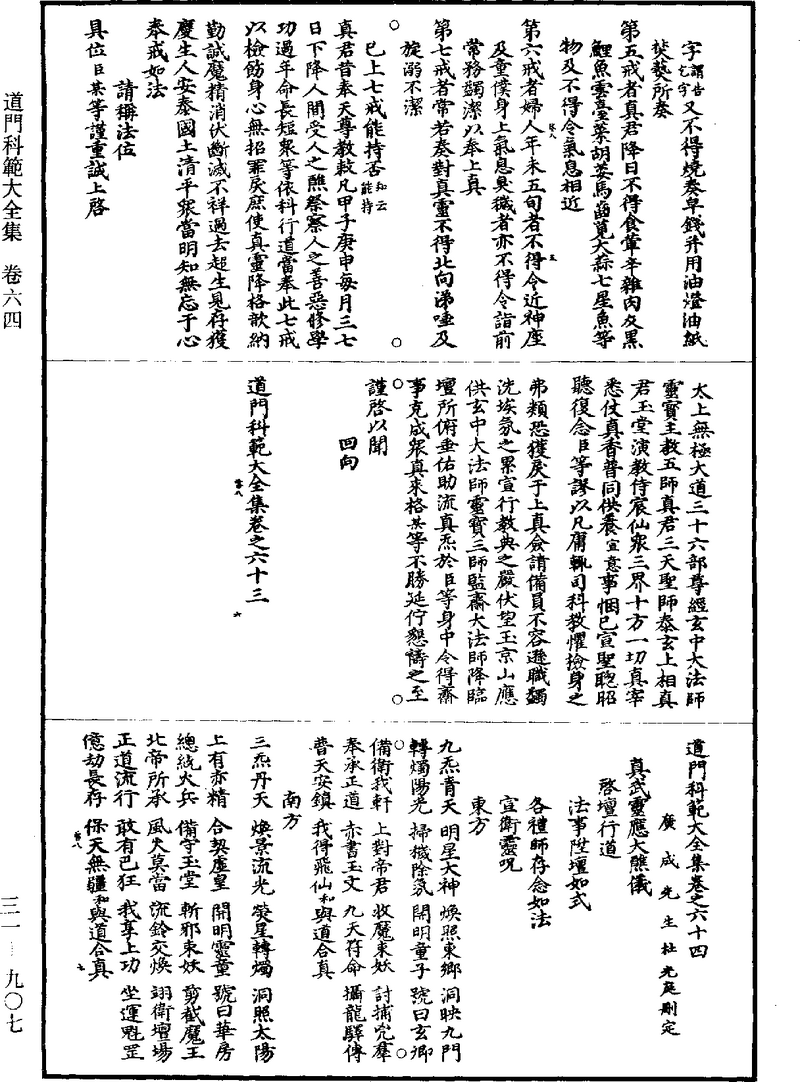 道門科範大全集　卷六四
三一—九〇七
字謂告乞字又不得燒奏阜錢并用油澄油紙
焚爇所奏
第五戒者真君降日不得食葷辛雜肉及黑
鯉魚雲臺菜胡荽馬齒莧大蒜七星魚等
物及不得令氣息相近
第六戒者婦人年未五旬者不得令近神座
及童僕身上氣息臭穢者亦不得令詣前
常務蠲潔以奉上真
第七戒者常若奏對真靈不得北向涕唾及
旋溺不潔
已上七戒能持否知云能持
真君昔奉天尊教敕凡甲子庚申每月三七
日下降人間受人之醮祭察人之善惡修學
功過年命長短眾等依科行道當奉此七戒
以檢飭身心無招罪戾庶使真靈降格歆納
勤誠魔精消伏斷滅不祥過去超生見存獲
慶生人安泰國土清平眾當明知無忘于心
奉戒如法
請稱法位
具位臣某等謹重誠上啓
太上無極大道三十六部尊經玄中大法師
靈寶王教五師真君三天聖師泰玄上相真
君玉堂演教侍宸仙眾三界十方一切真宰
悉仗真香普同供養宣意事悃已宣聖聰昭
聽復念臣等謬以凡庸輒司科教懼檢身之
弗類恐獲戾于上真僉請備員不容遜職蠲
洗埃氛之累宣行教典之嚴伏望玉京山應
供玄中大法師靈寶三師監齋大法師降臨
壇所俯垂佑助流真炁於臣等身中令得齋
事克成眾真來格某等不勝延佇懇禱之至
謹啓以聞
回向
道門科範大全集卷之六十三
道門科範大全集卷之六十四
廣成先生杜光庭刪定
真武靈應大醮儀
啓壇行道
法事陞壇如式
各禮師存念如法
宣衛靈呪
東方
九炁青天　明星大神　煥照東鄉　洞映九門
轉燭陽光　掃穢除氛　開明童子　號曰玄卿
備衛我軒　上對帝君　收魔束妖　討捕兇羣
奉承正道　赤書玉文　九天符命　攝龍驛傳
普天安鎮　我得飛仙和與道合真
南方
三炁丹天　煥景流光　熒星轉燭　洞照太陽
上有赤精　合契虛皇　開明靈童　號曰華房
總統火兵　備守玉堂　斬邪束妖　剪截魔王
北帝所承　風火莫當　流鈴交煥　翊衛壇場
正道流行　敢有巴狂　我享上功　坐運魁罡
億劫長存　保天無疆和與道合真